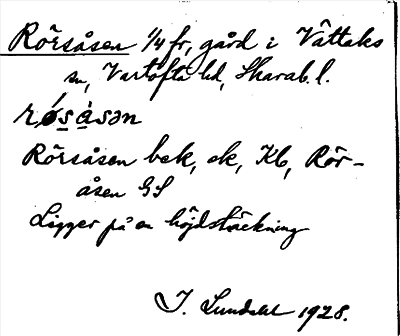 Rörsåsen 1/4 fr, gård i Våttaks
sn, Vartofta hd, Skarab. l.
rǿsåsən
Rörsåsen bek, ek, Kb, Rör-
åsen GS
Ligger på en höjdsträckning
I. Lundahl 1928.